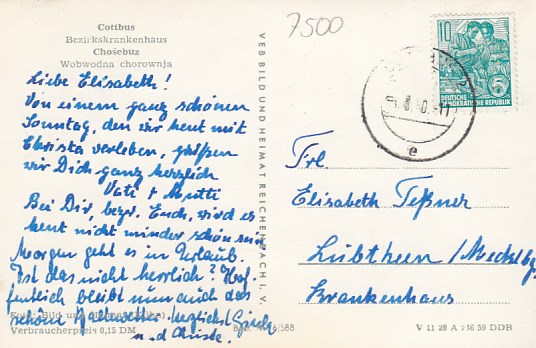 Cottbus
Bezirkskrankenhaus
Chośebuz
Wobwodna chorownja
Liebe Elisabeth!
Von einem ganz schönen
Sonntag, den wir heut mit
Christa verleben, grüßen
wir Dich ganz herzlich
Vati + Mutti
Bei Dir, bezw. Euch, wird es
heut nicht minder schön sein
Morgen geht es in Urlaub.
Ist das nicht herrlich? Hof-
fentlich bleibt nun auch das
schöne
Verbraucherpreis 0,15 DM
VEB BILD UND HEIMAT REICHENBACH I. V.
7500
10
DEUTSCHE
DEMOKRATISCHE REPUBLIK
5
e
Frl.
Elisabeth Teßner
Lübtheen/Mecklbg.
Krankenhaus
V 11 28 A 59 DDR